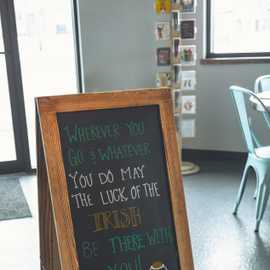 WHEREVER YOU
GO & WHATEVER
YOU DO MAY
THE LUCK OF THE
IRISH
BE THERE WITH
YOU!